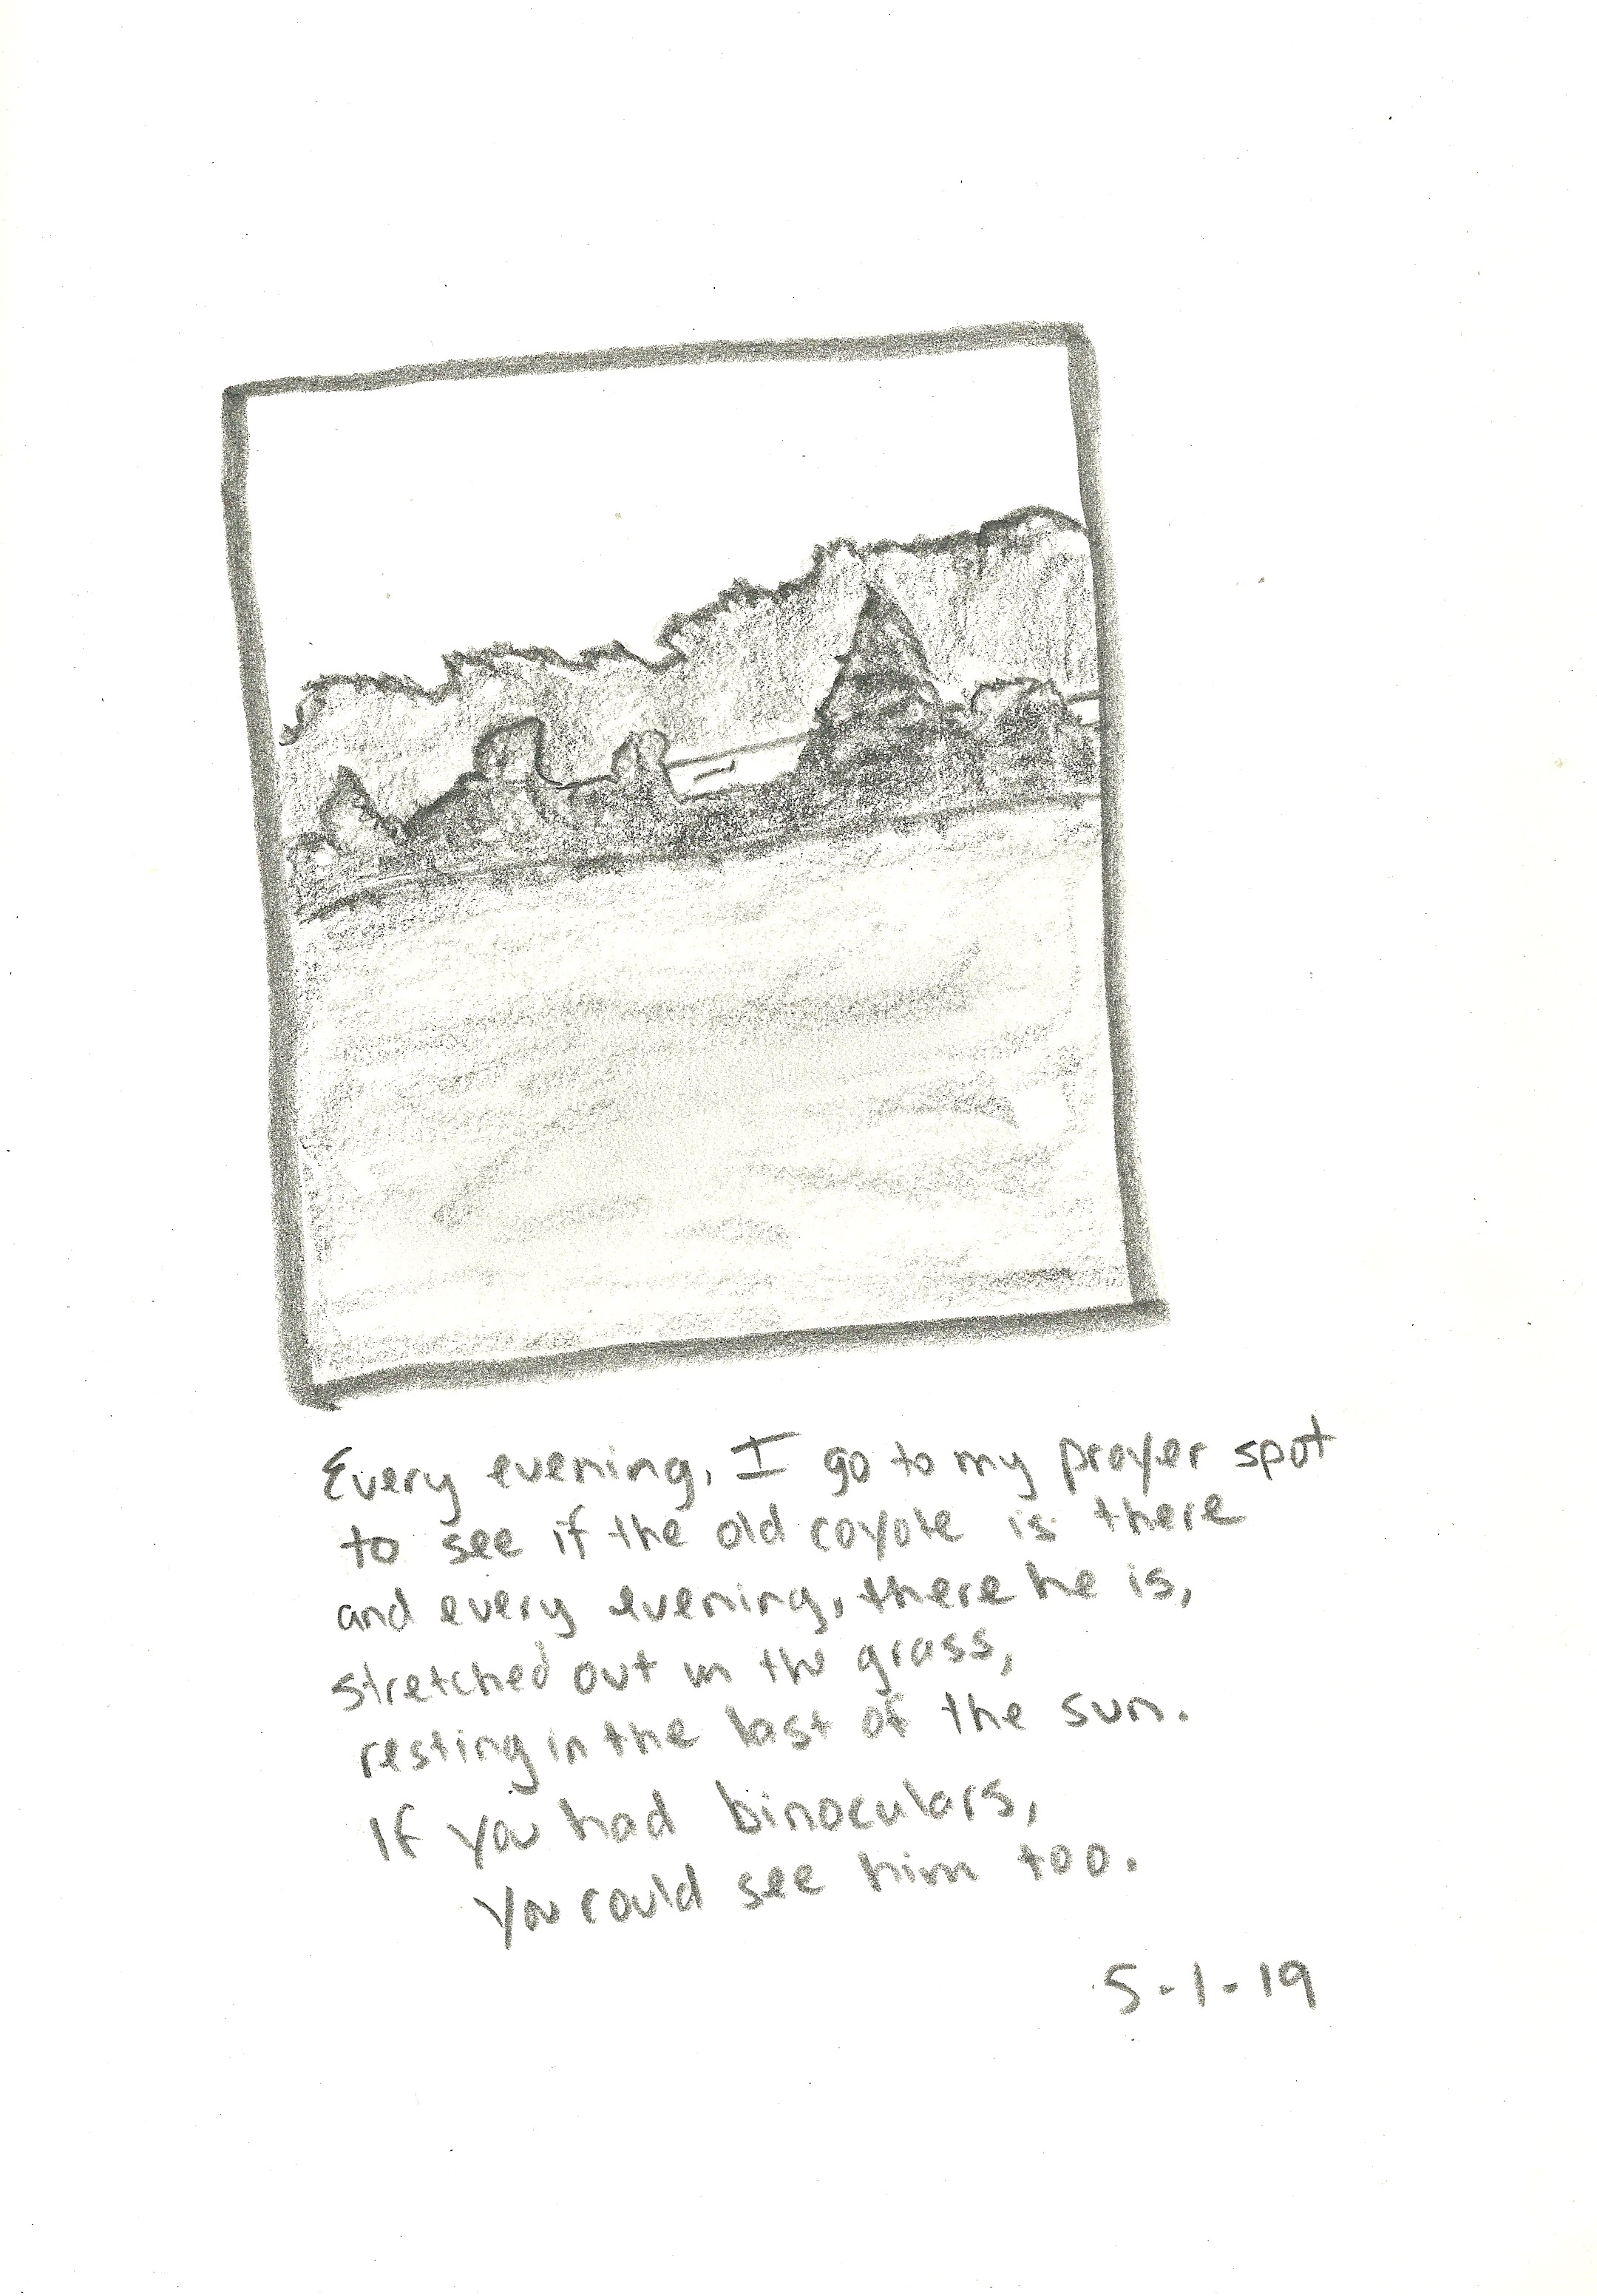 Every evening, I go to my prayer spot
to see if the old coyote is there
and every evening, there he is,
stretched out in the grass,
resting in the last of the sun.
If you had binoculars,
you could see him too.
5-1-19